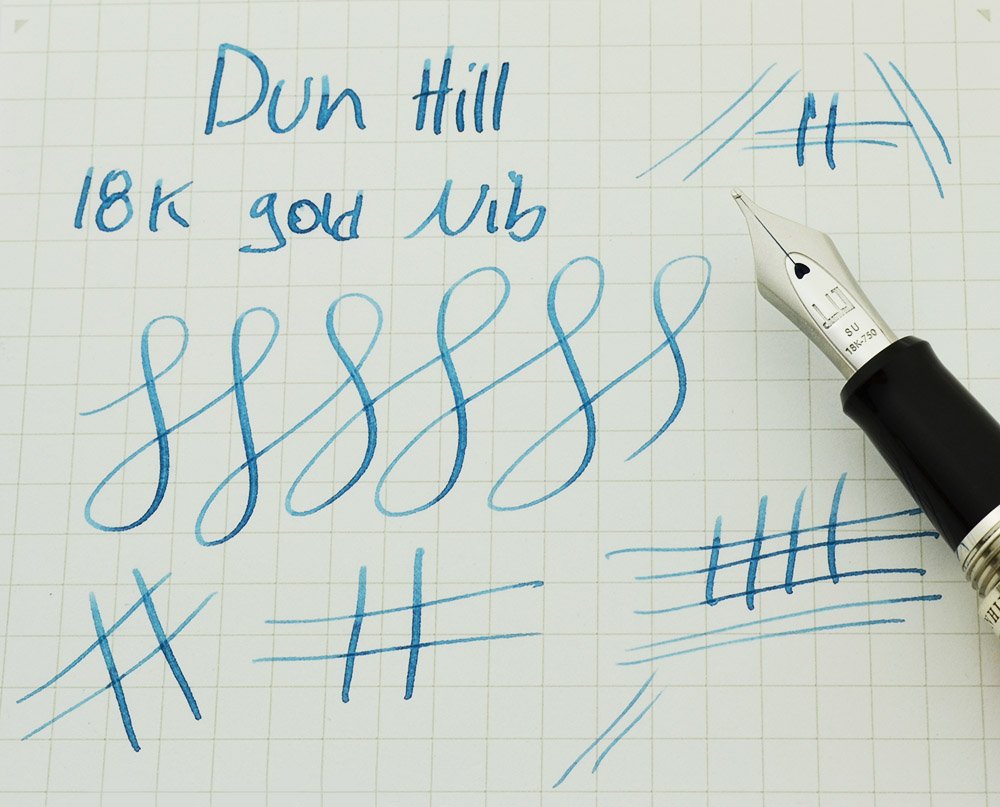 Dun Hill
18K gold Nib
SU
18K-750